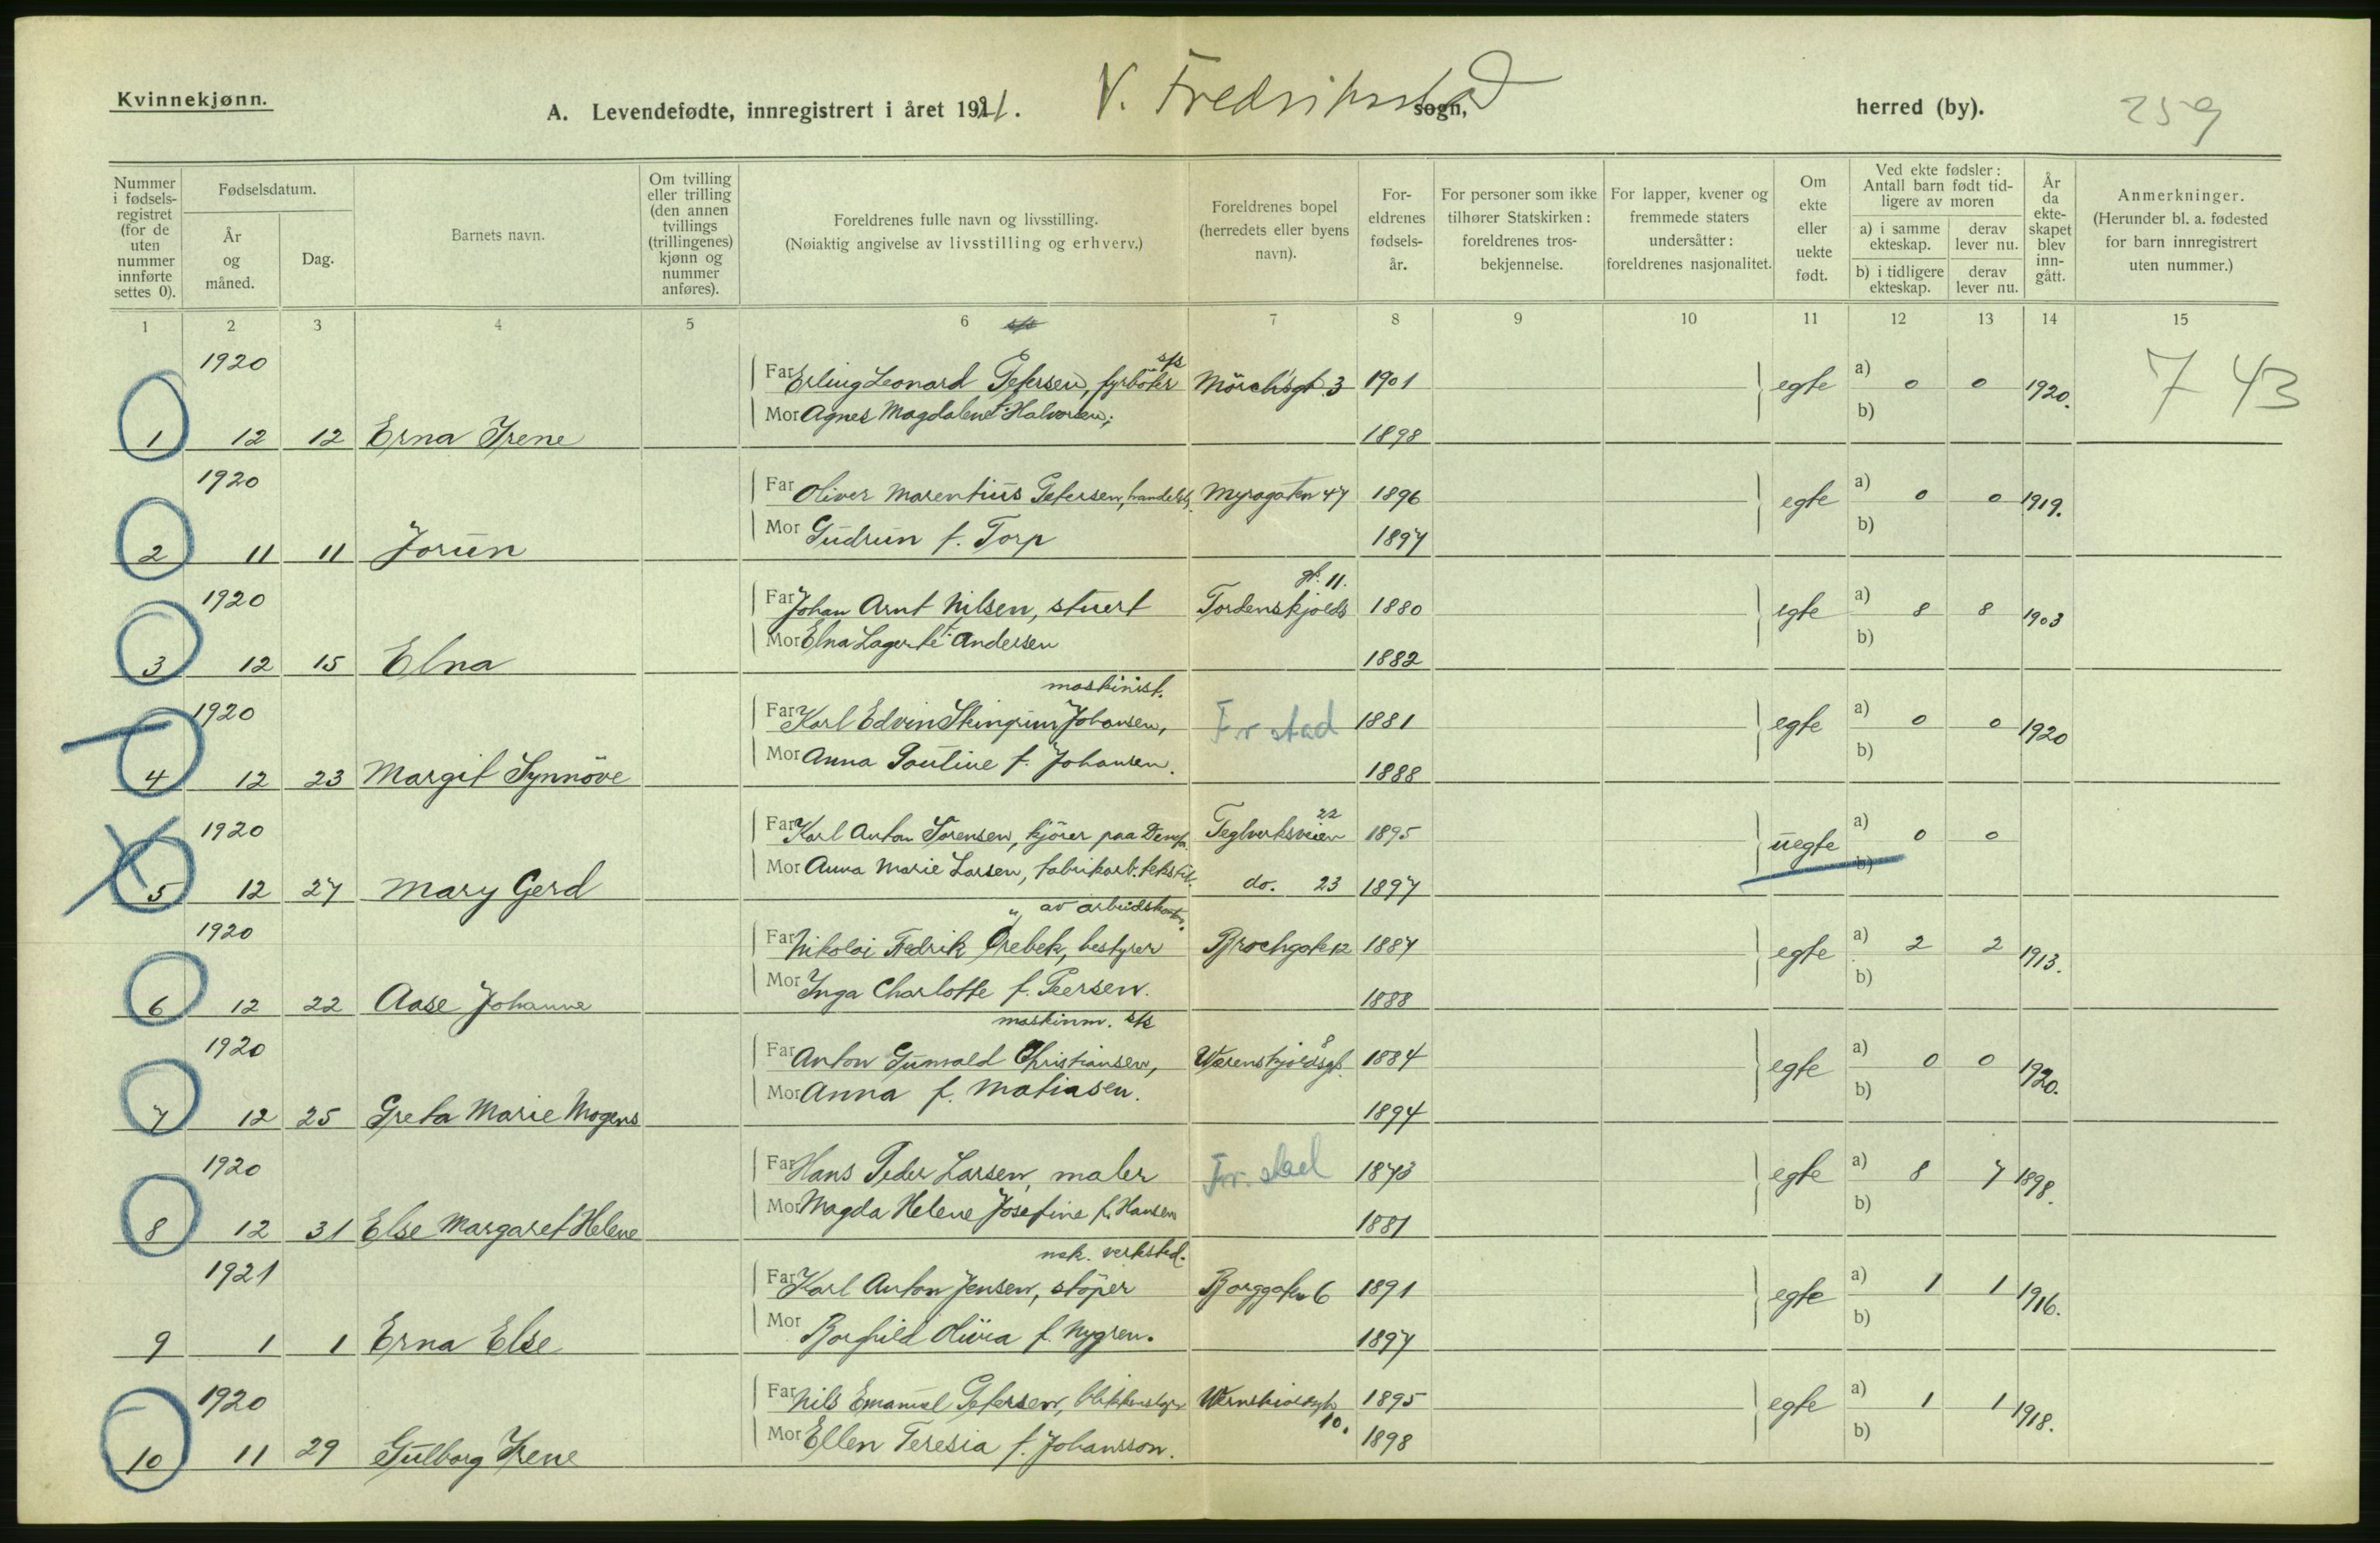 Kvinnekjønn.
A. Levendefødte, innregistrert i året 1921. V. Fredriksstad sogn, herred (by). 259
Nummer i fødsels-registret (for de uten nummer innførte settes 0).
Fødselsdatum.
År og måned.
Dag.
Barnets navn.
Om tvilling eller trilling (den annen tvillings (trillingenes) kjønn og nummer anføres).
Foreldrenes fulle navn og livsstilling.
(Nøiaktig angivelse av livsstilling og erhverv.)
Foreldrenes bopel (herredets eller byens navn).
For-eldrenes fødsels-år.
For personer som ikke tilhører Statskirken: foreldrenes tros-bekjennelse.
For lapper, kvener og fremmede staters undersåtter: foreldrenes nasjonalitet.
Om ekte eller uekte født.
Ved ekte fødsler: Antall barn født tid-ligere av moren
a) i samme ekteskap.
derav lever nu.
b) i tidligere ekteskap.
derav lever nu.
År da ekte-skapet blev inn-gått.
Anmerkninger.
(Herunder bl. a. fødested for barn innregistrert uten nummer.)
1 2 3 4 5 6 7 8 9 10 11 12 13 14 15
1920 Far Erling Leonard Petersen, fyrbøter s/s Mörchsgt. 3 1901 egte a) 0 0 1920. 743
1 12 12 Erna Irene Mor Agnes Magdalene f. Halvorsen; 1898 b)
1920 Far Oliver Marentius Petersen, Myragaten 47 1896 egte a) 0 0 1919.
2 11 11 Jorun Mor Gudrun f. Torp 1897 b)
1920 Far Johan Arnt Nilsen, stuert Tordenskjolds gt. 11. 1880 egte a) 8 8 1903
3 12 15 Elna Mor Elna f. Andersen 1882 b)
maskinist.
1920 Far Karl Edvin Johansen, Fr stad 1881 egte a) 0 0 1920
4 12 23 Margit Synnöve Mor Anna Pauline f. Johansen. 1888 b)
1920 Far Karl Anton Sörensen, kjörer paa Teglverksveien 22 1895 uegte a) 0 0
5 12 27 Mary Gerd Mor Anna Marie Larsen, fabrikarb. tekstil. do. 23 1897 b)
av arbeidskont.
1920 Far Nikolai Fredrik Örebek, bestyrer Brochgate 12 1887 egte a) 2 2 1913.
6 12 22 Aase Johanne Mor Inga Charlotte f. Peersen. 1888 b)
maskinm. s/s
1920 Far Anton Gunvald Christiansen, Wærenskjoldsgt. 8 1884 egte a) 0 0 1920.
7 12 25 Greta Marie Mogens Mor Anna f. Matiasen. 1894 b)
1920 Far Hans Peder Larsen, maler Fr. stad 1873 egte a) 8 7 1898.
8 12 31 Else Margaret Helene Mor Magda Helene Josefine f. Hansen 1881 b)
mek. verksted.
1921 Far Karl Anton Jensen, stöper Borggaten 6 1891 egte a) 1 1 1916.
9 1 1 Erna Else Mor Borghild Olivia f. Nygren. 1897 b)
1920 Far Nils Emanuel Petersen, blikkenslager 10. 1895 egte a) 1 1 1918.
10 11 29 Gulborg Irene Mor Ellen Teresia f. Johansson. 1898 b)